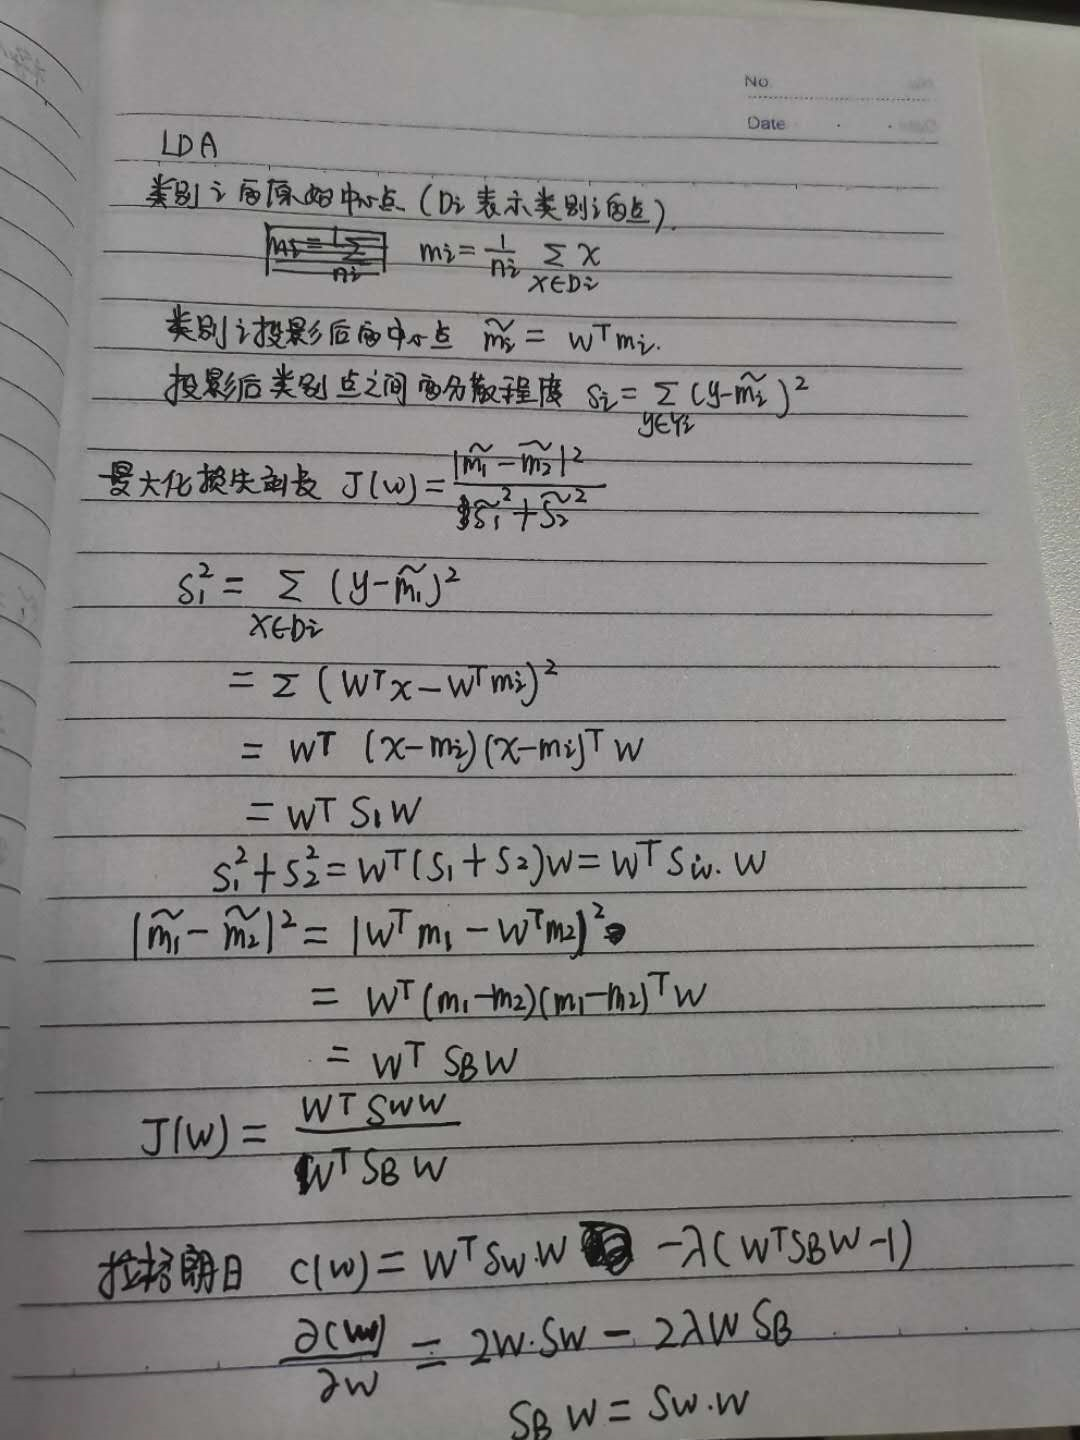 No.
Date . .
LDA
类别i的原始中心点 (Di 表示类别i的点).
mi = 1/ni Σ x
x∈Di
类别i投影后的中心点 m̃i = wᵀmi.
投影后类别点之间的分散程度 Si = Σ (y-m̃i)²
y∈Yi
最大化损失函数 J(w) = |m̃1 - m̃2|² / s̃1² + s̃2²
S1² = Σ (y-m̃1)²
x∈Di
= Σ (wᵀx - wᵀmi)²
= wᵀ (x-mi)(x-mi)ᵀ w
= wᵀ S1 w
S1² + S2² = wᵀ(S1 + S2)w = wᵀ Sw. w
|m̃1 - m̃2|² = |wᵀm1 - wᵀm2|²
= wᵀ(m1-m2)(m1-m2)ᵀw
= wᵀ SB w
J(w) = wᵀ Sw w / wᵀ SB w
拉格朗日 c(w) = wᵀ Sw·w -λ(wᵀSBw-1)
∂c(w)/∂w = 2w·Sw - 2λw SB
SB w = Sw·w